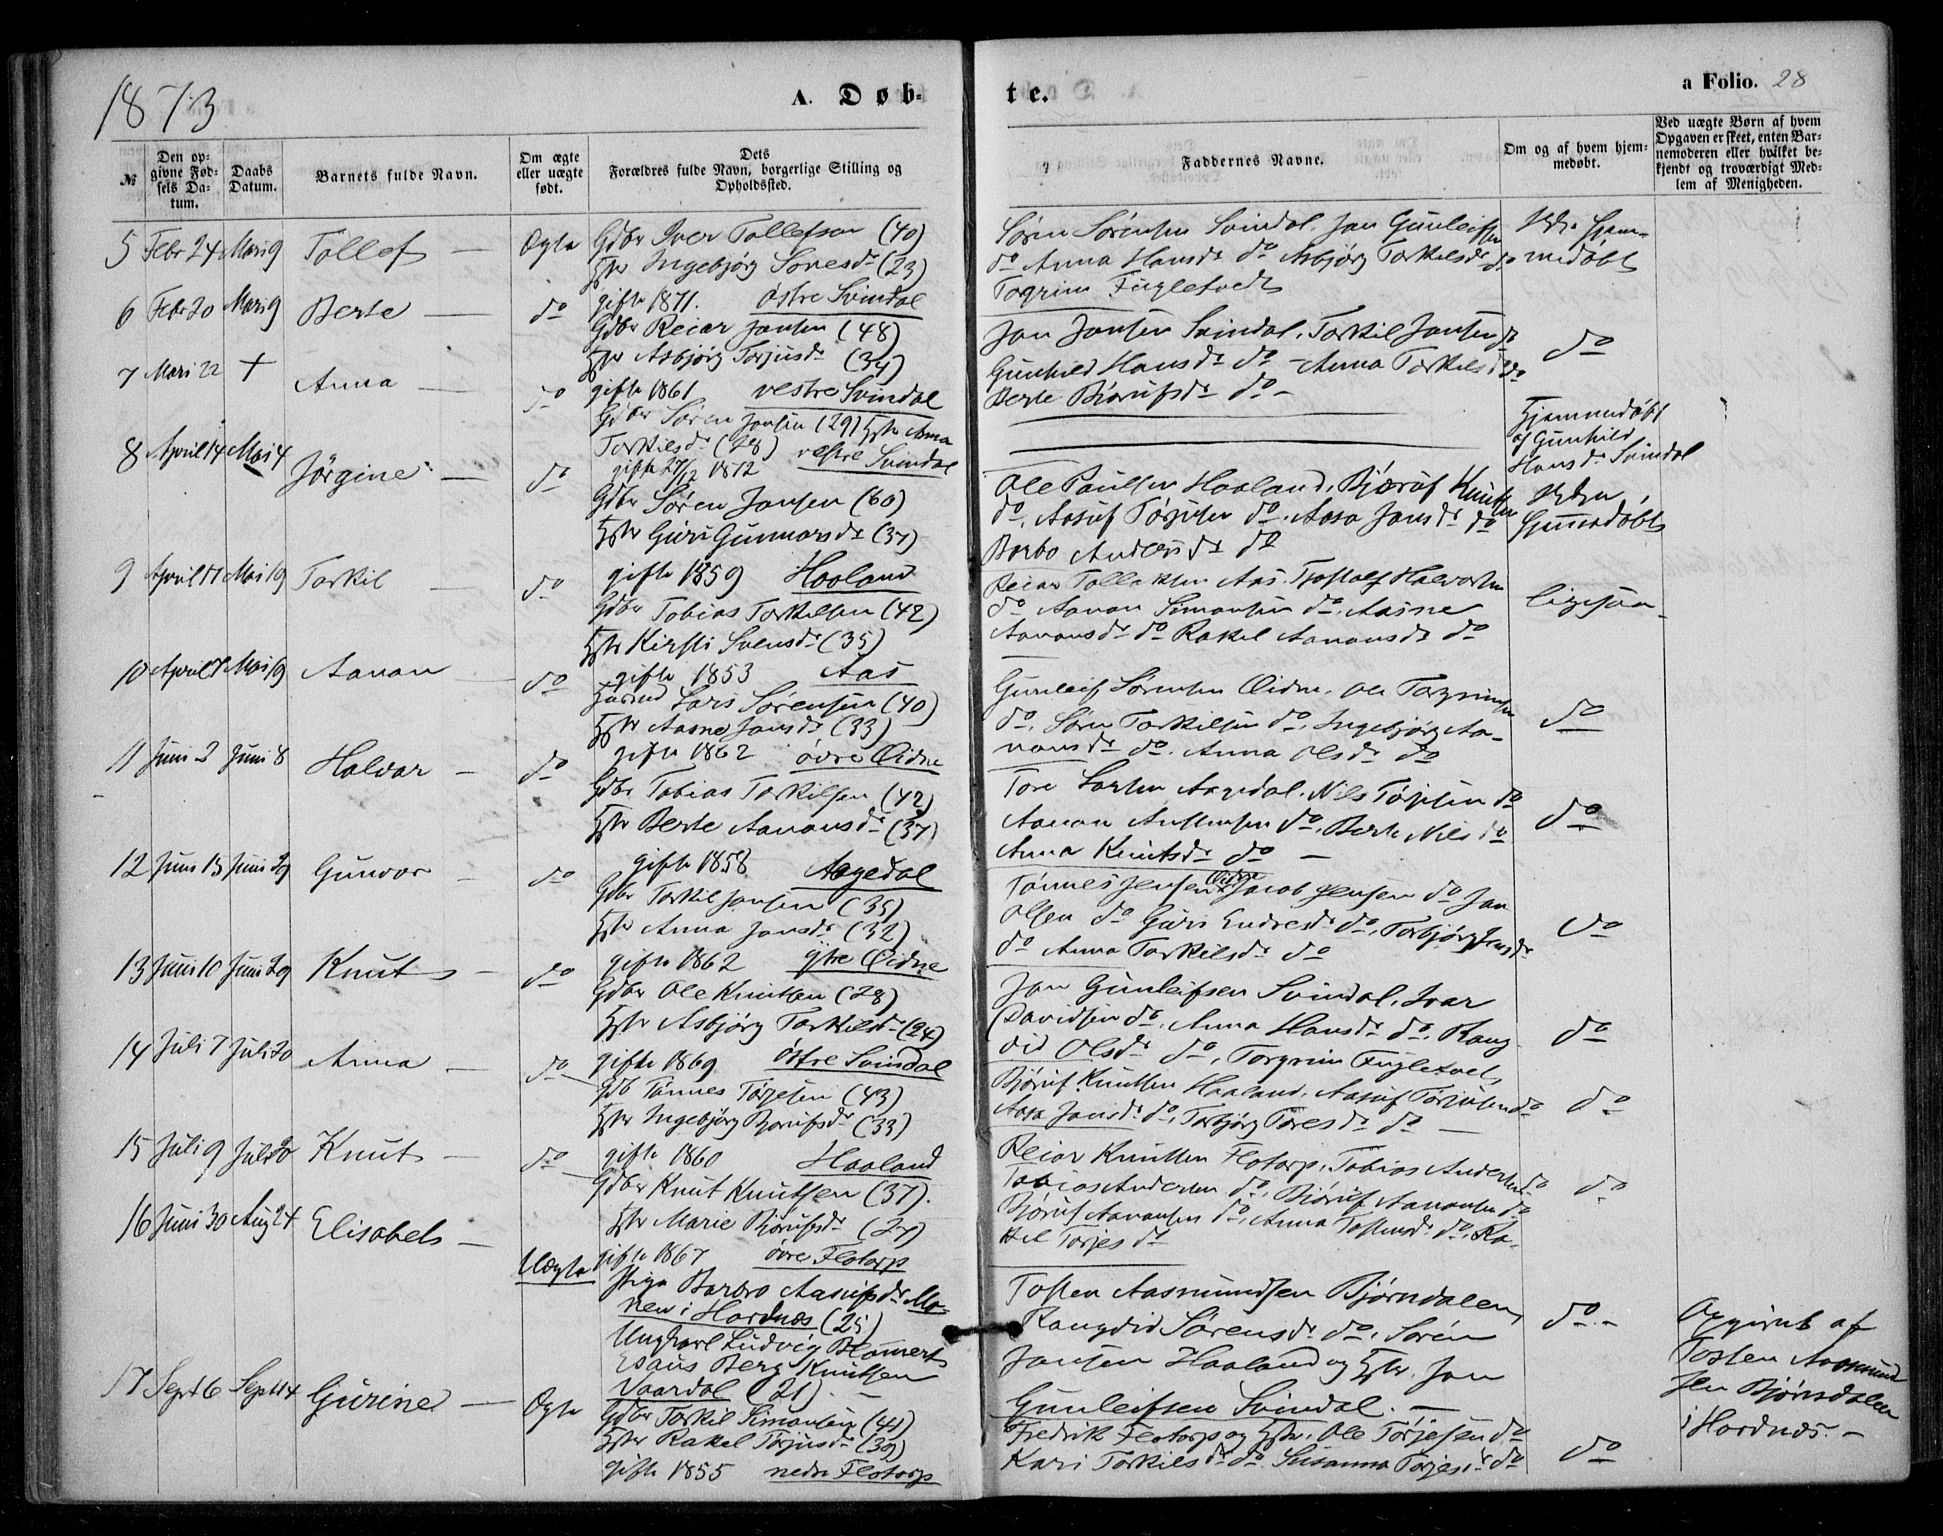 1873
A. Døb-
te.
a Folio. 28
№
Den op-
givne Fød-
sels Da-
tum.
Daabs
Datum.
Barnets fulde Navn.
Om ægte
eller uægte
født.
Dets
Forældres fulde Navn, borgerlige Stilling og
Opholdssted.
Faddernes Navne.
Om og af hvem hjem-
medøbt.
Ved uægte Børn af hvem
Opgaven er skeet, enten Bar-
nemoderen eller hvilket be-
kjendt og troværdigt Med-
lem af Menigheden.
5 Febr 24 Marts 9 Tollef Ægte Gdbr Iver Tollefsen (40)
Hstr Ingebjørg Sonesdr (23)
gifte 1871. østre Svindal
Søren Sørensen Svindal, Jan Gunleifsen
do Anna Hansdr do Asbjørg Torkilsdr do
Togrim Fugletvedt
Hjem-
medøbt
6 Febr 20 Marts 9 Berte do
Gdbr Reiar Jansen (48)
Hstr Asbjørg Torjusdr (34)
gifte 1861 vestre Svindal
Jan Jansen Svindal, Torkil Jansen do
Gunhild Hansdr do - Anna Torkilsdr do
Berte Bjørufsdr do -
do
7 Mars 22 + Anna do
Gdbr Søren Jansen (29) Hstr Anna
Torkilsdr (28) vestre Svindal
gifte 27/12 1872
Hjemmedøbt
af Gunhild
Hansdr Svindal
8 April 14 Mai 4 Jörgine do
Gdbr Søren Jansen (60)
Hstr Guri Gunnarsdr (37)
gifte 1859 Haaland
Ole Paulsen Haaland, Bjøruf Knutsen
do, Aasuf Törjusen do, Aasa Jansdr do
Barbo Andersdr do
Hjemedøbt
9 April 17 Mai 19 Torkil do
Gdbr Tobias Torkilsen (42)
Hstr Kirsti Svensdr (35)
gifte 1853 Aas
Reiar Tollaksen Aas, Tjostolf Halvorsen
do Aanon Simonsen do, Aasne
Aanonsdr do Rakel Aanonsdr do
ligesaa
10 April 7 Mai 19 Aanon do
Lars Sørensen (40)
Hstr Aasne Jansdr (33)
gifte 1862 övre Øidne
Gunleif Sørensen Øidne, Ole Torgrimsen
do, Søren Torkilsen do, Ingebjørg Aa-
nonsdr do, Anna Olsdr do
do
11 Juni 2 Juni 8 Halvor do
Gdbr Tobias Torkilsen (42)
Hstr Berte Aanonsdr (37)
gifte 1858 Aagedal
Tore Larsen Aagedal, Nils Törjesen do
Aanon Austensen do, Berte Nilsdr do
Anna Knutsdr do -
do
12 Juni 15 Juni 29 Gunvor do
Gdbr Torkil Jansen (35)
Hstr Anna Jansdr (32)
gifte 1862 ytre Øidne
Tønnes Jensen Øidne Jacob Jensen do Jan
Olsen do Guri Endresdr do, Torbjørg Jensdr
do Anna Torkilsdr do
do
13 Juni 10 Juni 29 Knut do
Gdbr Ole Knutsen (28)
Hstr Asbjørg Torkilsdr (24)
gifte 1869 østre Svindal
Jan Gunleifsen Svindal, Ivar
Davidsen do, Anna Hansdr do, Rang-
did Olsdr do, Torgrim Fugletvedt
do
14 Juli 7 Juli 20 Anna do
Gdb Tønnes Törjesen (43)
Hstr Ingebjørg Bjørufsdr (33)
gifte 1860 Haaland
Björuf Knutsen Haaland, Aasuf Törjusen do
Aasa Jansdr do, Torbjörg Toresdr do -
do
15 Juli 9 Juli 20 Knut do
Gdbr Knut Knutsen (37).
Hstr Marie Bjørufsdr (27)
gifte 1867 övre Flotorp
Reiar Knutsen Flotorp, Tobias Andersen do
Tobias Andersen do, Björuf Aanonsen do
Björuf Aanonsen do, Anna Tostensdr do, Ra-
kel Törjesdr
do
16 Juni 30 Aug 24 Elisabeth Uægte
Pige Barbro Aasufsdr Mo-
nen i Hordnæs (25)
Ungkarl Ludvig Blomert
Esaus Berg Knutsen
Vaardal (21). -
Tosten Aasmundsen Bjørndalen
Rangdid Sörensdr do, Søren
Jansen Haaland og Hstr. Jan
Gunleifsen Svindal. -
do -
Opgivet af
Tosten Aasmund-
sen Bjørndalen
i Hordnæs. -
17 Sept 6 Sept 14 Gurine Ægte
Gdbr Torkil Simonsen (44)
Hstr Rakel Törjusdr (39)
gifte 1855 nedre Flotorp
Fredrik Flotorp og Hstr. Ole Törjesen do
Kari Torkilsdr do Susanna Torjesdr do
do